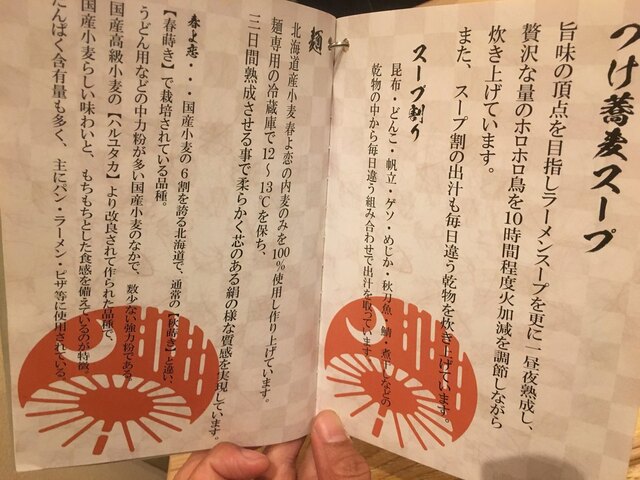 つけ蕎麦スープ
旨味の頂点を目指しラーメンスープを更に一昼夜熟成し、
贅沢な量のホロホロ鳥を10時間程度火加減を調節しながら
炊き上げています。
また、スープ割の出汁も毎日違う乾物を炊き上げています。
スープ割り
昆布・どんこ・帆立・ゲソ・めじか・秋刀魚・鯖・煮干しなどの
乾物の中から毎日違う組み合わせで出汁を取っています。
麺
北海道産小麦 春よ恋の内麦のみを100%使用し作り上げています。
麺専用の冷蔵庫で12〜13℃を保ち、
三日間熟成させる事で柔らかく芯のある絹の様な質感を実現しています。
春よ恋・・・国産小麦の6割を誇る北海道で、通常の【秋蒔き】と違い、
【春蒔き】で栽培されている品種。
うどん用などの中力粉が多い国産小麦のなかで、数少ない強力粉である
国産高級小麦の【ハルユタカ】より改良されて作られた品種で、
国産小麦らしい味わいと、もちもちとした食感を備えているのが特徴。
たんぱく含有量も多く、主にパン・ラーメン・ピザ等に使用されている。